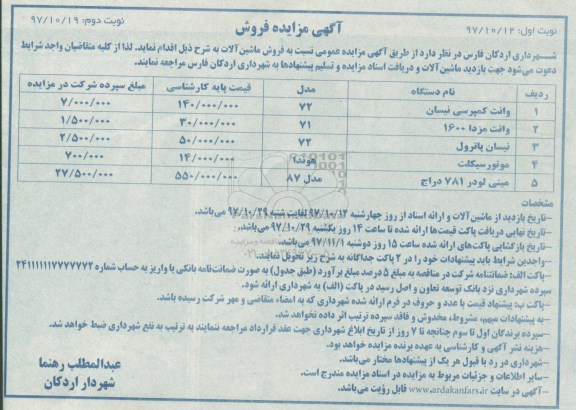 نوبت اول: ۹۷/۱۰/۱۲
آگهی مزایده فروش
نوبت دوم: ۹۷/۱۰/۱۹
شـهرداری اردکان فارس در نظر دارد از طریق آگهی مزایده عمومی نسبت به فروش ماشین‌آلات به شرح ذیل اقدام نماید. لذا از کلیه متقاضیان واجد شرایط
دعوت می‌شود جهت بازدید ماشین‌آلات و دریافت اسناد مزایده و تسلیم پیشنهادها به شهرداری اردکان فارس مراجعه نمایند.
ردیف نام دستگاه مدل قیمت پایه کارشناسی مبلغ سپرده شرکت در مزایده
۱ وانت کمپرسی نیسان ۷۲ ۱۴۰/۰۰۰/۰۰۰ ۷/۰۰۰/۰۰۰
۲ وانت مزدا ۱۶۰۰ ۷۱ ۳۰/۰۰۰/۰۰۰ ۱/۵۰۰/۰۰۰
۳ نیسان پاترول ۷۲ ۵۰/۰۰۰/۰۰۰ ۲/۵۰۰/۰۰۰
۴ موتورسیکلت هوندا ۱۴/۰۰۰/۰۰۰ ۷۰۰/۰۰۰
۵ مینی لودر ۷۸۱ دراج مدل ۸۷ ۵۵۰/۰۰۰/۰۰۰ ۲۷/۵۰۰/۰۰۰
مشخصات
-تاریخ بازدید از ماشین‌آلات و ارائه اسناد از روز چهارشنبه ۹۷/۱۰/۱۲ لغایت شنبه ۹۷/۱۰/۲۹ می‌باشد.
-تاریخ نهایی دریافت پاکت قیمت‌ها ارائه شده تا ساعت ۱۴ روز یکشنبه ۹۷/۱۰/۲۹ می‌باشد.
-تاریخ بازگشایی پاکت‌های ارائه شده ساعت ۱۵ روز دوشنبه ۹۷/۱۱/۱ می‌باشد.
-واجدین شرایط باید پیشنهادات خود را در ۲ پاکت جداگانه به شرح زیر تحویل نمایند.
-پاکت الف: ضمانتنامه شرکت در مناقصه به مبلغ ۵ درصد مبلغ برآورد (طبق جدول) به صورت ضمانت‌نامه بانکی یا واریز به حساب شماره ۲۴۱۱۱۱۱۱۷۷۷۷۷۷۲
سپرده شهرداری نزد بانک توسعه تعاون و اصل رسید در پاکت (الف) به شهرداری ارائه شود.
-پاکت ب: پیشنهاد قیمت با عدد و حروف در فرم ارائه شده شهرداری که به امضاء متقاضی و مهر شرکت رسیده باشد.
-به پیشنهادات مبهم، مشروط، مخدوش و فاقد سپرده ترتیب اثر داده نخواهد شد.
-سپرده برندگان اول تا سوم چنانچه تا ۷ روز از تاریخ ابلاغ شهرداری جهت عقد قرارداد مراجعه ننمایند به ترتیب به نفع شهرداری ضبط خواهد شد.
-هزینه نشر آگهی و کارشناسی به عهده برنده مزایده خواهد بود.
-شهرداری در رد یا قبول هر یک از پیشنهادها مختار می‌باشد.
-سایر اطلاعات و جزئیات مربوط به مزایده در اسناد مزایده مندرج است.
-آگهی در سایت www.ardakanfars.ir قابل رؤیت می‌باشد.
عبدالمطلب رهنما
شهردار اردکان